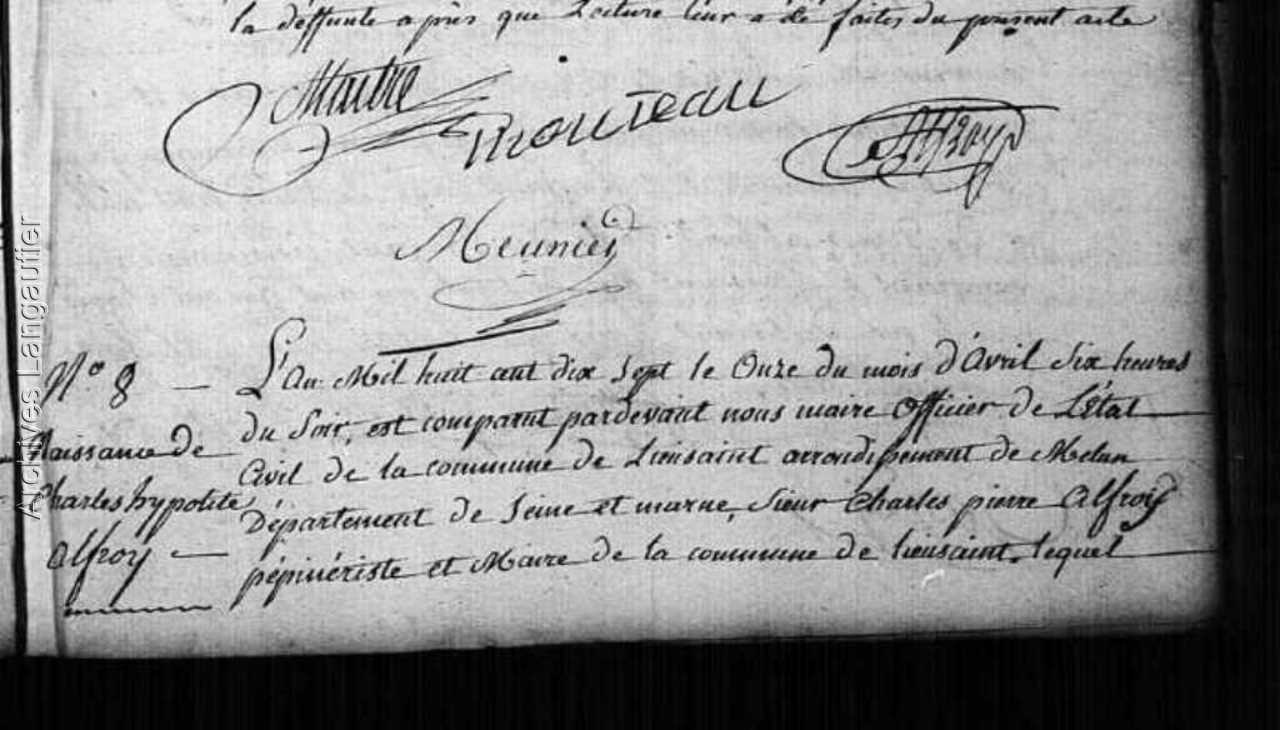 la deffunte après que Lecture leur a été faites du present acte
Maitre
Mouteau
Alfroy
Meunier
N.o 8 — L'An Mil huit cent dix Sept le Onze du mois d'Avril Six heures
du Soir, est comparut pardevant nous maire Officier de L'État
Naissance de
Civil de la commune de Lieusaint arrondissement de Melun
Charles hypolite
Département de Seine et marne, Sieur Charles pierre Alfroy
Alfroy —
pépinièriste et Maire de la commune de lieusaint. lequel
Archives Langautier